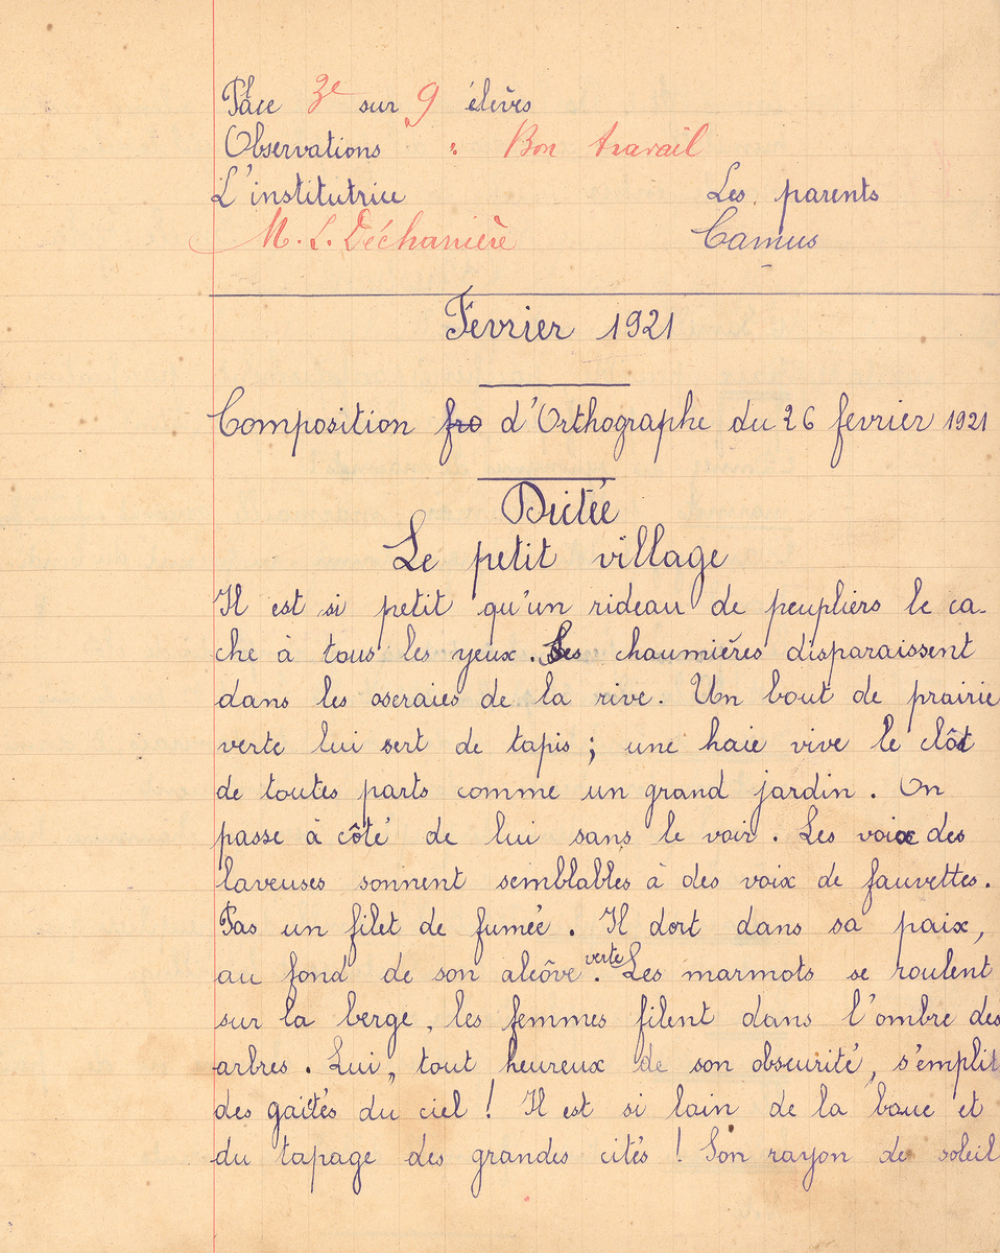 Place 3e sur 9 élèves
Observations : Bon travail
L'institutrice Les parents
M. L. Déchanière Camus
Février 1921
Composition fro d'Orthographe du 26 février 1921
Dictée
Le petit village
Il est si petit qu'un rideau de peupliers le ca-
che à tous les yeux. Ses chaumières disparaissent
dans les oseraies de la rive. Un bout de prairie
verte lui sert de tapis ; une haie vive le clôt
de toutes parts comme un grand jardin. On
passe à côté de lui sans le voir. Les voix des
laveuses sonnent semblables à des voix de fauvettes.
Pas un filet de fumée. Il dort dans sa paix,
au fond de son alcôve verte. Les marmots se roulent
sur la berge, les femmes filent dans l'ombre des
arbres. Lui, tout heureux de son obscurité, s'emplit
des gaîtés du ciel ! Il est si loin de la boue et
du tapage des grandes cités ! Son rayon de soleil